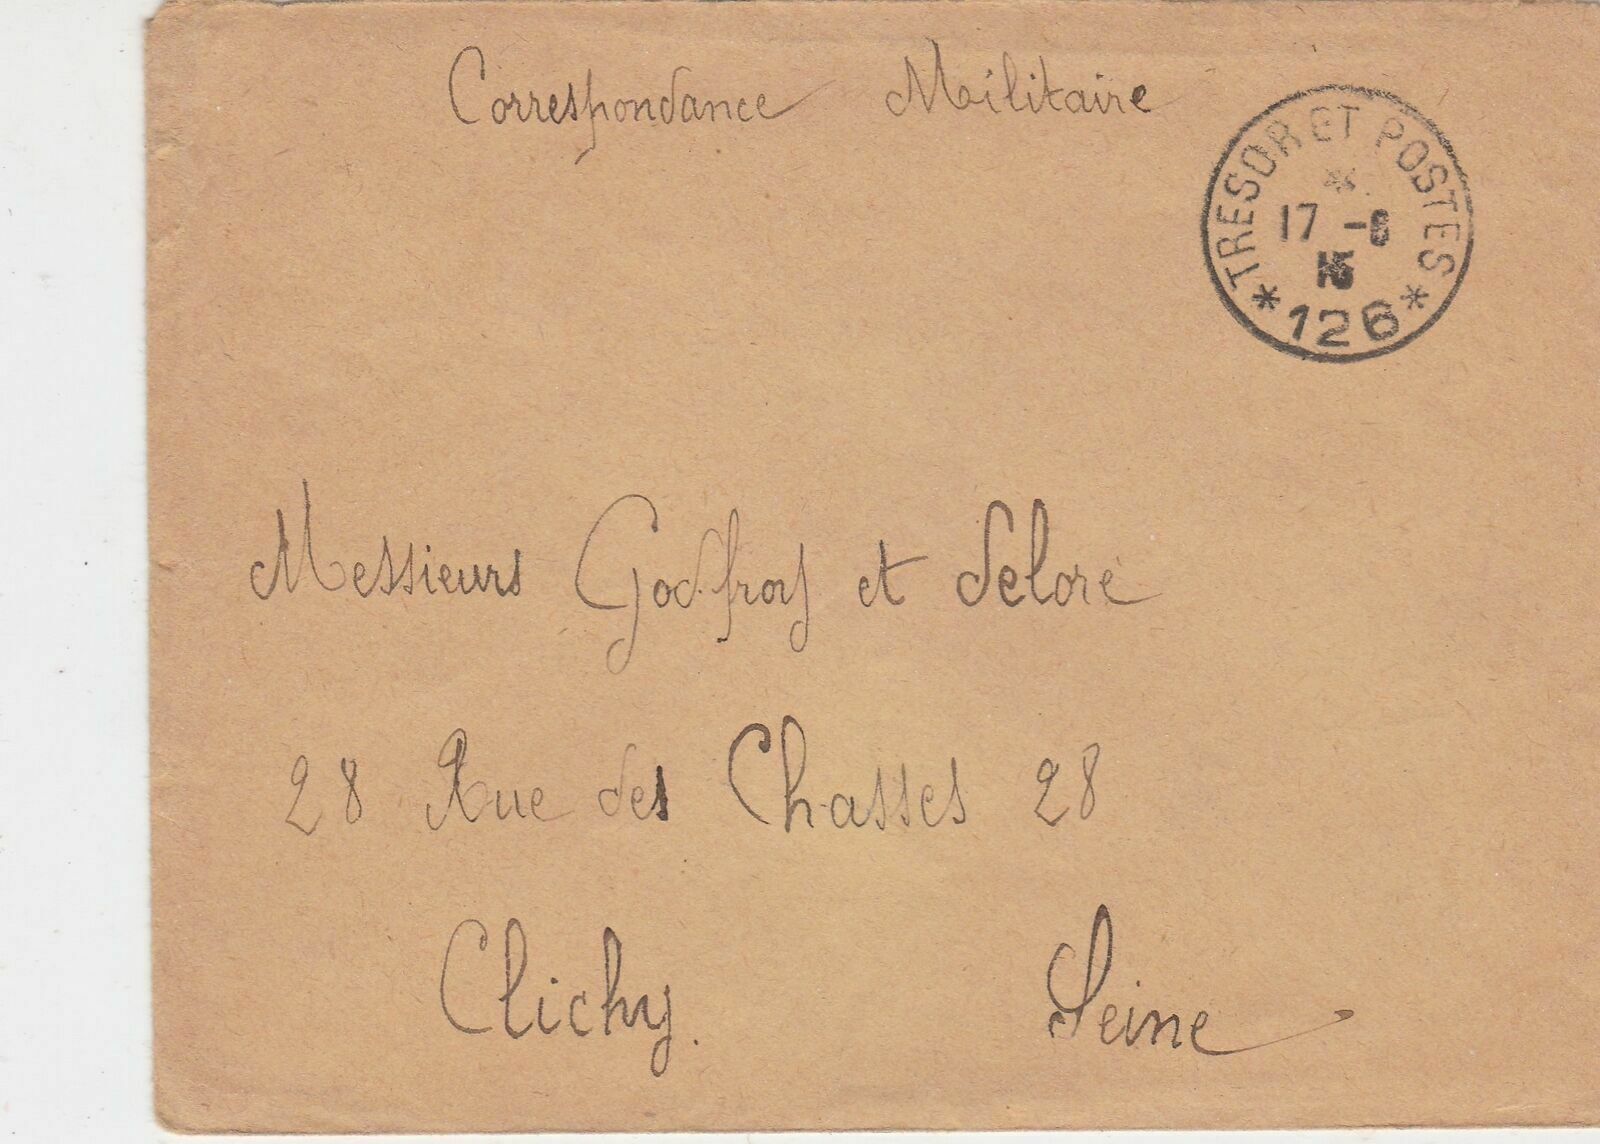 Correspondance Militaire
TRESOR ET POSTES
17 -6
15
* 126 *
Messieurs Godfroy et Delore
28 Rue des Chasses 28
Clichy. Seine